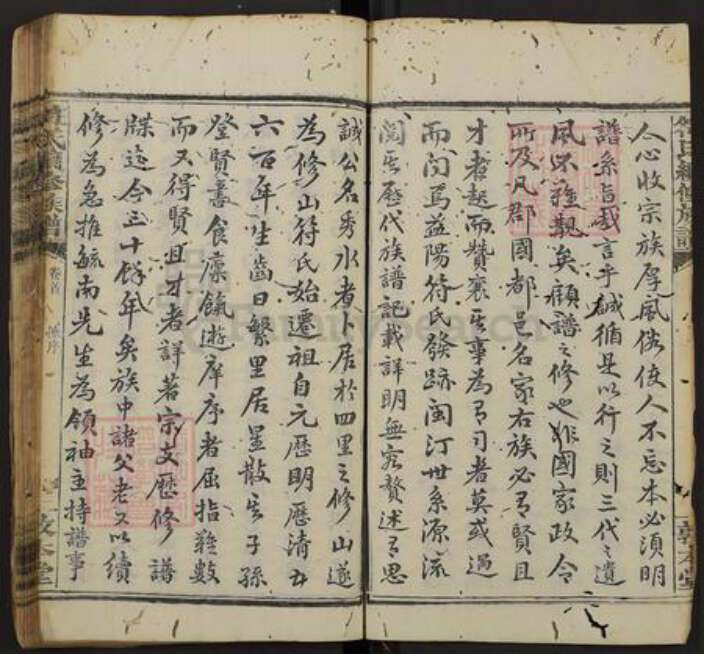 人心收宗族厚風俗使人不忘本必須明
譜系旨哉言乎誠循是以行之則三代之遺
風不難觀矣顧譜之修也非國家政令
所及凡郡國都邑名家右族必有賢且
才者起而贊襄其事為有司者莫或過
而問焉益陽符氏發跡閩汀世系源流
閱其歷代族譜記載詳明無容贅述有思
誠公名秀水者卜居於四里之修山遂
為修山符氏始遷祖自元歷明歷清六
六百年生齒日繁里居星散其子孫
登賢書食廩餼遊庠序者屈指難數
而又得賢且才者詳著宗支歷修譜
牒迄今三十餘年矣族中諸父老又以續
修為急推毓南先生為領袖主持譜事
符氏續修族譜
卷首
序
敦本堂